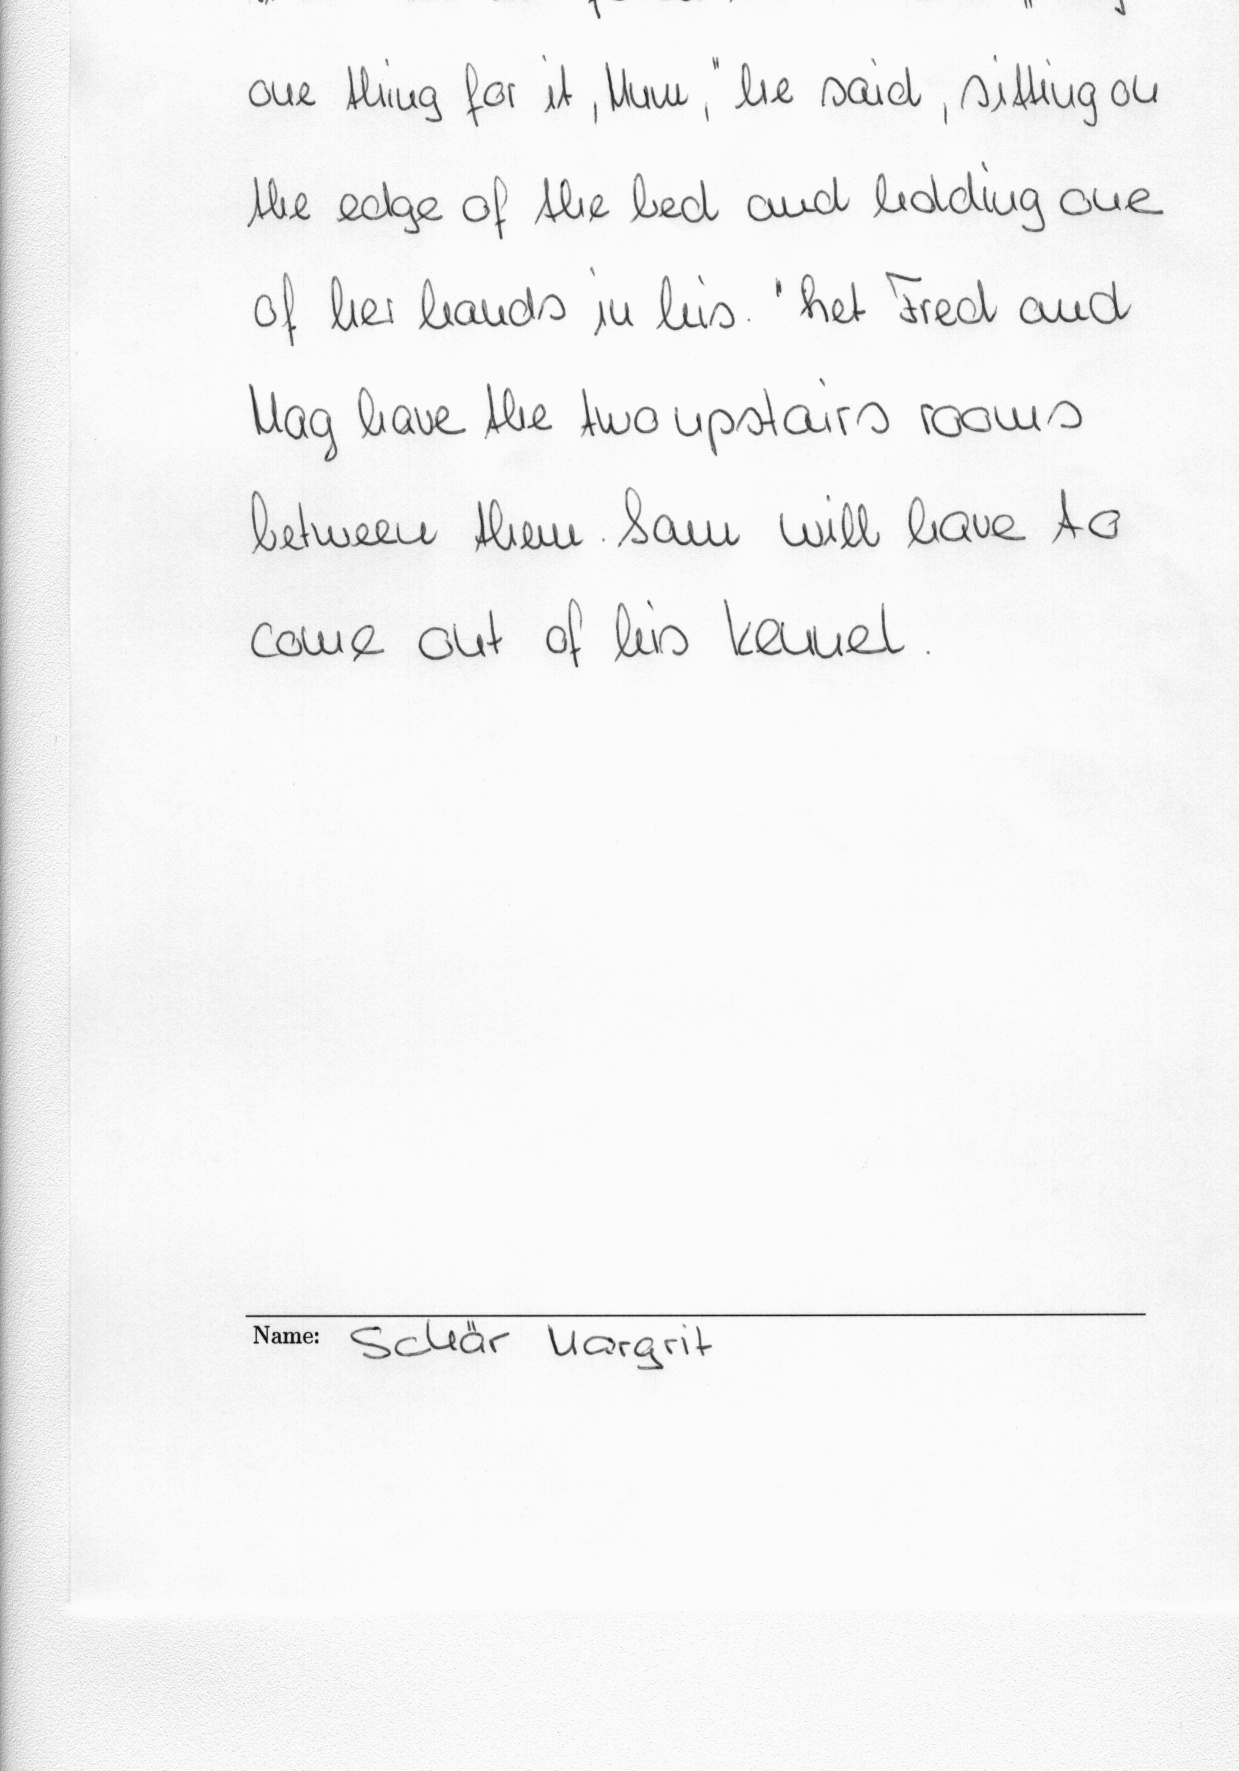 one thing for it, Mum," he said, sitting on
the edge of the bed and holding one
of her hands in his. "Let Fred and
Mag have the two upstairs rooms
between them. Sam will have to
come out of his kennel.
Name: Schär Margrit